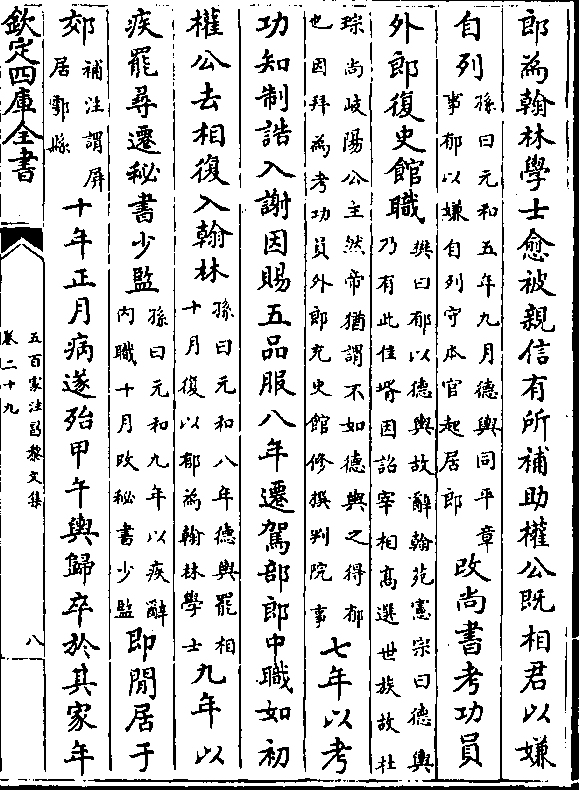 郎為翰林學士愈被親信有所補助權公既相君以嫌
自列孫曰元和五年九月德輿同平章
事郁以嫌自列守本官起居郎改尚書考功員
外郎復史館職樊曰郁以德輿故辭翰苑憲宗曰德輿
乃有此佳壻因詔宰相髙選世族故杜
琮尚岐陽公主然帝猶謂不如德輿之得郁
也因拜為考功員外郎充史館修撰判院事七年以考
功知制誥入謝因賜五品服八年遷駕部郎中職如初
權公去相復入翰林孫曰元和八年德輿罷相
十月復以郁為翰林學士九年以
疾罷尋遷秘書少監孫曰元和九年以疾辭
内職十月改秘書少監即閒居于
郊補注謂屏
居鄠縣十年正月病遂殆甲午輿歸卒於其家年
欽定四庫全書
五百家注昌黎文集
卷二十九
八